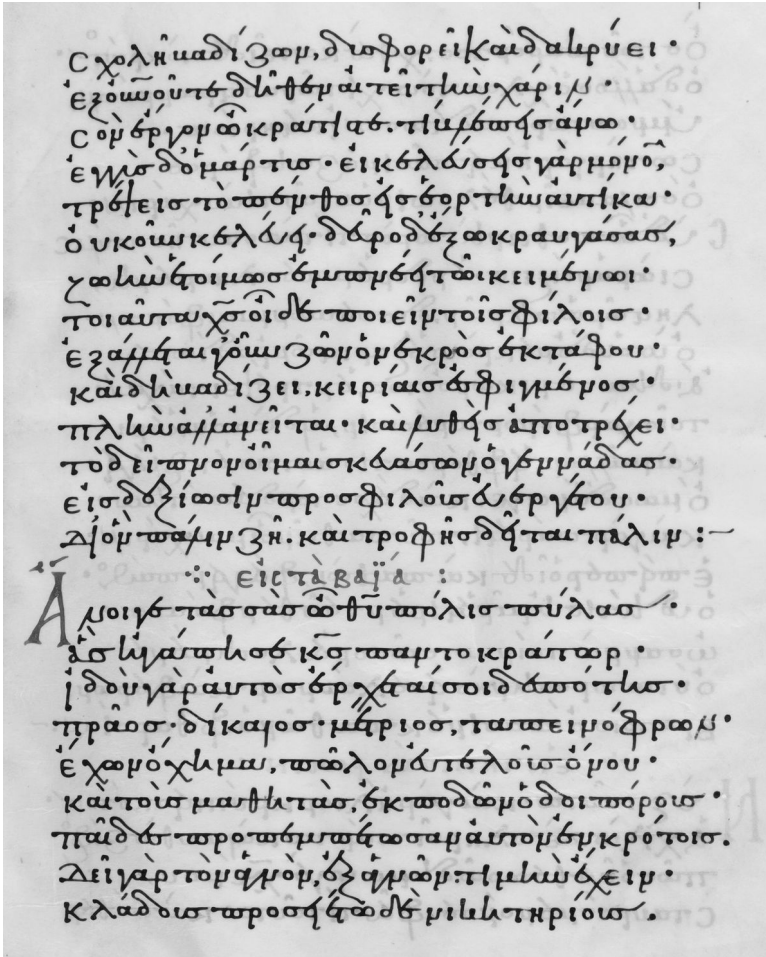 Σχολῇ βαδίζων, δυσφορεῖ καὶ δακρύει·
δῆθεν αἰτεῖ τὴν χάριν·
Σὸν ἔργον ὦ κράτιστε.
ἐγγὺς δ' ὁ μάρτυς· εἰ κελεύσεις γὰρ μόνον,
τρέψεις τὸ πένθος εἰς ἑορτὴν αὐτίκα·
Οὐκοῦν κελεύει· δεῦρο δ' ἔξω κραυγάσας,
ζωὴν ἑτοίμως ἐμπνέει τῶι κειμένωι·
τοιαῦτα χς οἶδε ποιεῖν τοῖς φίλοις·
ἐξάλλεται γοῦν ζῶν ὁ νεκρὸς ἐκ τάφου·
καὶ δὴ βαδίζει, κειρίαις ἐσφιγμένος·
πλὴν ἀλλ' ἀνεῖται· καὶ λυθεὶς ἀποτρέχει·
τὸ δεῖπνον οἶμαι σκευάσων ὁ γεννάδας·
εἰς δεξίωσιν προσφιλοῦς εὐεργέτου·
Δι' ὃν πάλιν ζῇ. καὶ τροφῆς δεῖται πάλιν :~
⁘ εἰς τὰ βαϊά :
Ἄνοιγε τὰς σὰς ὦ θυ πόλις πύλας·
ἃς ἠγάπησε κς παντοκράτωρ·
ἰδοὺ γὰρ αὐτὸς ἔρχεταί σοι δεσπότης·
πρᾶος· δίκαιος· μέτριος, ταπεινόφρων·
ἔχων ὄχημα, πῶλον εὐτελοῦς ὄνου·
καὶ τοὺς μαθητὰς, ἐκ ποδῶν ὁδοιπόρους·
παῖδες προπεμπέτωσαν αὐτὸν ἐν κρότοις.
Δεῖ γὰρ τὸν ἁγνὸν, ἐξ ἁγνῶν τιμὴν ἔχειν·
κλάδους δὲ νικητηρίους.